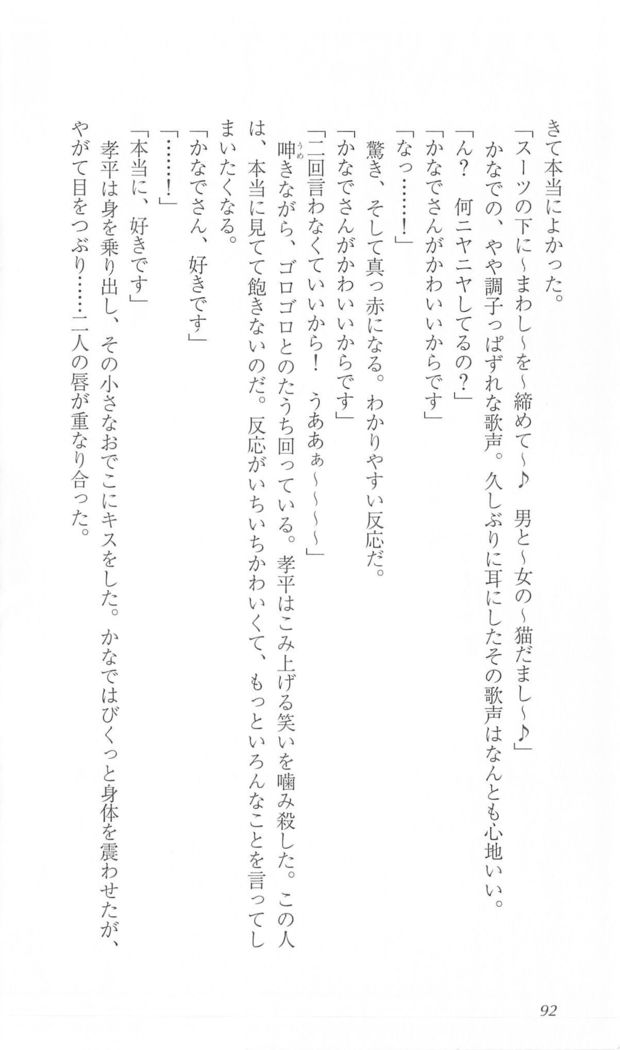 きて本当によかった。
「スーツの下に～まわし～を～締めて～♪　男と～女の～猫だまし～♪」
　かなでの、やや調子っぱずれな歌声。久しぶりに耳にしたその歌声はなんとも心地いい。
「ん？　何ニヤニヤしてるの？」
「かなでさんがかわいいからです」
「なっ……！」
　驚き、そして真っ赤になる。わかりやすい反応だ。
「かなでさんがかわいいからです」
「二回言わなくていいから！　うああぁ～～～～」
　呻きながら、ゴロゴロとのたうち回っている。孝平はこみ上げる笑いを噛み殺した。この人
うめ
は、本当に見てて飽きないのだ。反応がいちいちかわいくて、もっといろんなことを言ってし
まいたくなる。
「かなでさん、好きです」
「……！」
「本当に、好きです」
　孝平は身を乗り出し、その小さなおでこにキスをした。かなではびくっと身体を震わせたが、
やがて目をつぶり……二人の唇が重なり合った。
92